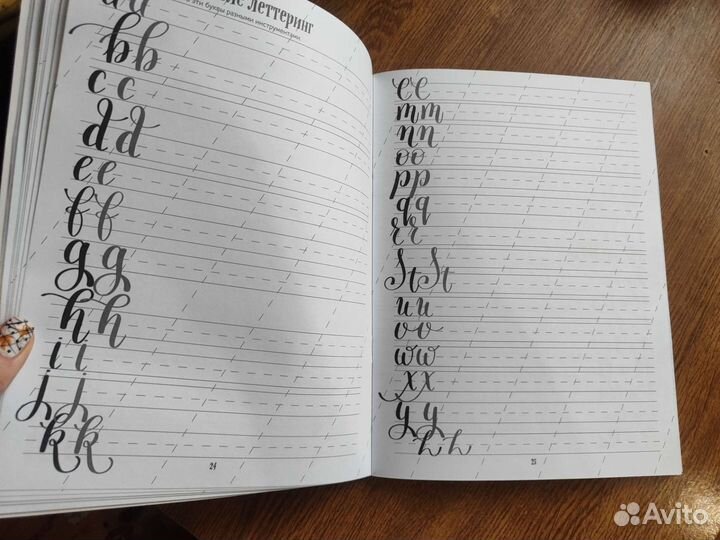 леттеринг
эти буквы разными инструментами.
a a
b b
c c
d d
e e
f f
g g
h h
i i
j j
k k
24
l l
m m
n n
o o
p p
q q
r r
St St
u u
v v
w w
x x
y y
25
Avito